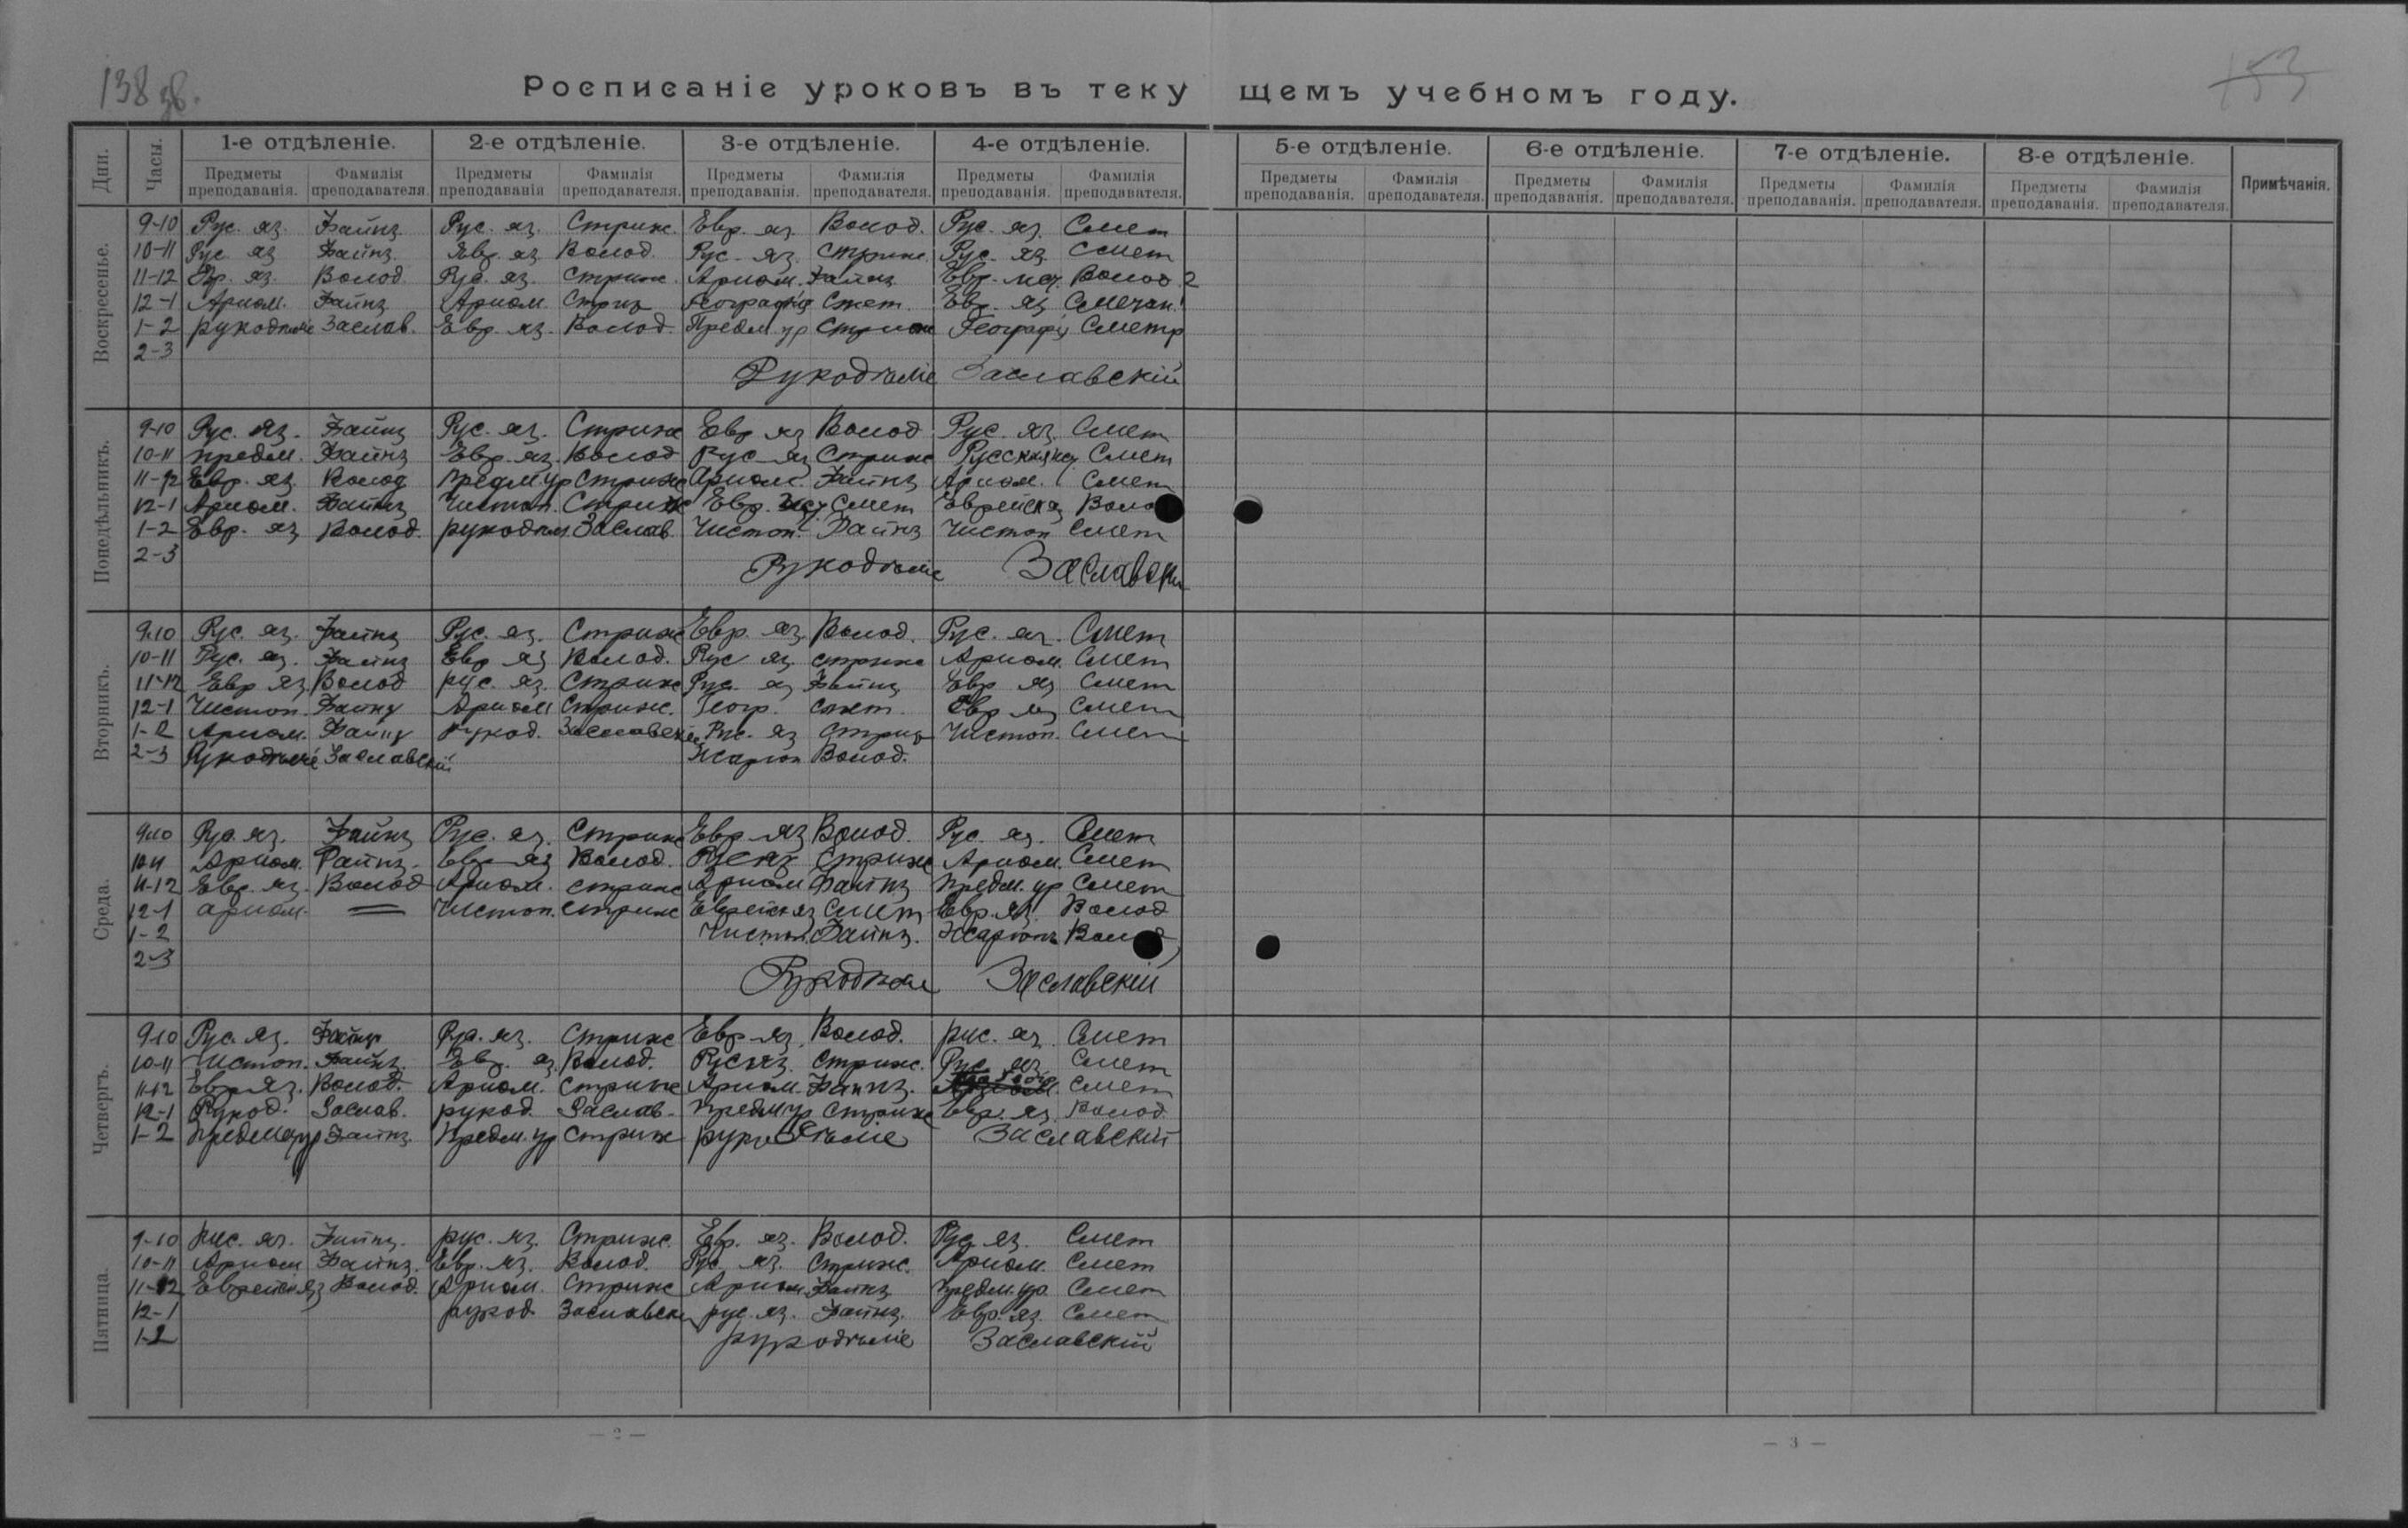 138 об.
153
Росписаніе уроковъ въ текущемъ учебномъ году.
Дни. Часы. 1-е отдѣленіе. 2-е отдѣленіе. 3-е отдѣленіе. 4-е отдѣленіе. 5-е отдѣленіе. 6-е отдѣленіе. 7-е отдѣленіе. 8-е отдѣленіе. Примѣчанія.
Предметы преподаванія. Фамилія преподавателя. Предметы преподаванія Фамилія преподавателя. Предметы преподаванія. Фамилія преподавателя. Предметы преподаванія. Фамилія преподавателя. Предметы преподаванія. Фамилія преподавателя. Предметы преподаванія. Фамилія преподавателя. Предметы преподаванія. Фамилія преподавателя. Предметы преподаванія. Фамилія преподавателя.
Воскресенье.
9-10 Рус. яз. Файнз Рус. яз. Стриж. Евр. яз. Волод. Рус. яз. Смет
10-11 Рус. яз Файнз. Евр. яз Волод. Рус. яз. Стриж. Рус. яз. Смет
11-12 Евр. яз. Волод. Рус. яз. Стриж. Ариѳм. Файнз Евр. Волод
12-1 Ариѳм. Файнз Ариѳм. Стриж Географія Смет. Евр. яз
1-2 рукодѣліе Заслав. Евр. яз. Волод. Предм. ур Стриж Географія
2-3
Рукодѣліе Заславскій
Понедѣльникъ.
9-10 Рус. яз. Файнз Рус. яз. Стриж Евр яз Волод Рус. яз. Смет
10-11 предм. Файнз Евр. яз. Волод Рус яз Стриж Смет
11-12 Евр. яз. Волод Предм ур Стриж Ариѳм. Файнз Ариѳм. Смет
12-1 Ариѳм. Файнз Чистоп. Стриж Евр. Смет Воло
1-2 Евр. яз Волод. рукодѣл. Заслав. Чистоп. Файнз Чистоп Смет
2-3
Рукодѣліе Заславскій
Вторникъ.
9-10 Рус. яз. Файнз Рус. яз. Стриж Евр. яз. Волод. Рус. яз. Смет
10-11 Рус. яз. Файнз Евр яз Волод. Рус яз. стриж Ариѳм. Смет
11-12 Евр яз. Волод рус. яз. Стриж Рус. яз Файнз Евр яз Смет
12-1 Чистоп. Файнз Ариѳм Стриж. Геогр. смет. Евр яз Смет
1-2 Ариѳм. Файнз Рукод. Заславскій Рус. яз Стриж Чистоп. Смет
2-3 Рукодѣліе Заславскій Волод.
Среда.
9-10 Рус. яз. Файнз Рус. яз. Стриж Евр яз Волод. Рус. яз. Смет
10-11 Ариѳм. Файнз. Евр яз Волод. Рус яз Стриж Ариѳм. Смет
11-12 Евр. яз. Волод Ариѳм. стриж Ариѳм Файнз Предм. ур Смет
12-1 ариѳм. = Чистоп. стриж Еврейск яз Смет Евр. яз. Волод
1-2 Чистоп. Файнз. Воло
2-3
Рукодѣліе Заславскій
Четвергъ.
9-10 Рус. яз. Файнз Рус. яз. Стриж Евр яз. Волод. рус. яз. Смет
10-11 Чистоп. Файнз. Евр. яз. Волод. Рус яз. Стриж. Рус яз. Смет
11-12 Евр яз. Волод. Ариѳм. Стриж Ариѳм. Файнз. Смет
12-1 Рукод. Заслав. рукод. Заслав. Предм ур Стриж Евр. яз. Волод.
1-2 Предм ур Файнз. Предм. ур Стриж рукодѣліе Заславскій
Пятница.
9-10 рус. яз. Файнз. рус. яз. Стриж. Евр. яз. Волод. Рус. яз. Смет
10-11 Ариѳм Файнз. Евр. яз. Волод. Рус яз. Стриж. Ариѳм. Смет
11-12 Еврейск яз Волод. Ариѳм. Стриж Ариѳм. Файнз Предм. ур. Смет
12-1 рукод Заславскі рус. яз. Файнз. Евр. яз. Смет
1-2 рукодѣліе Заславскій
— 2 —
— 3 —